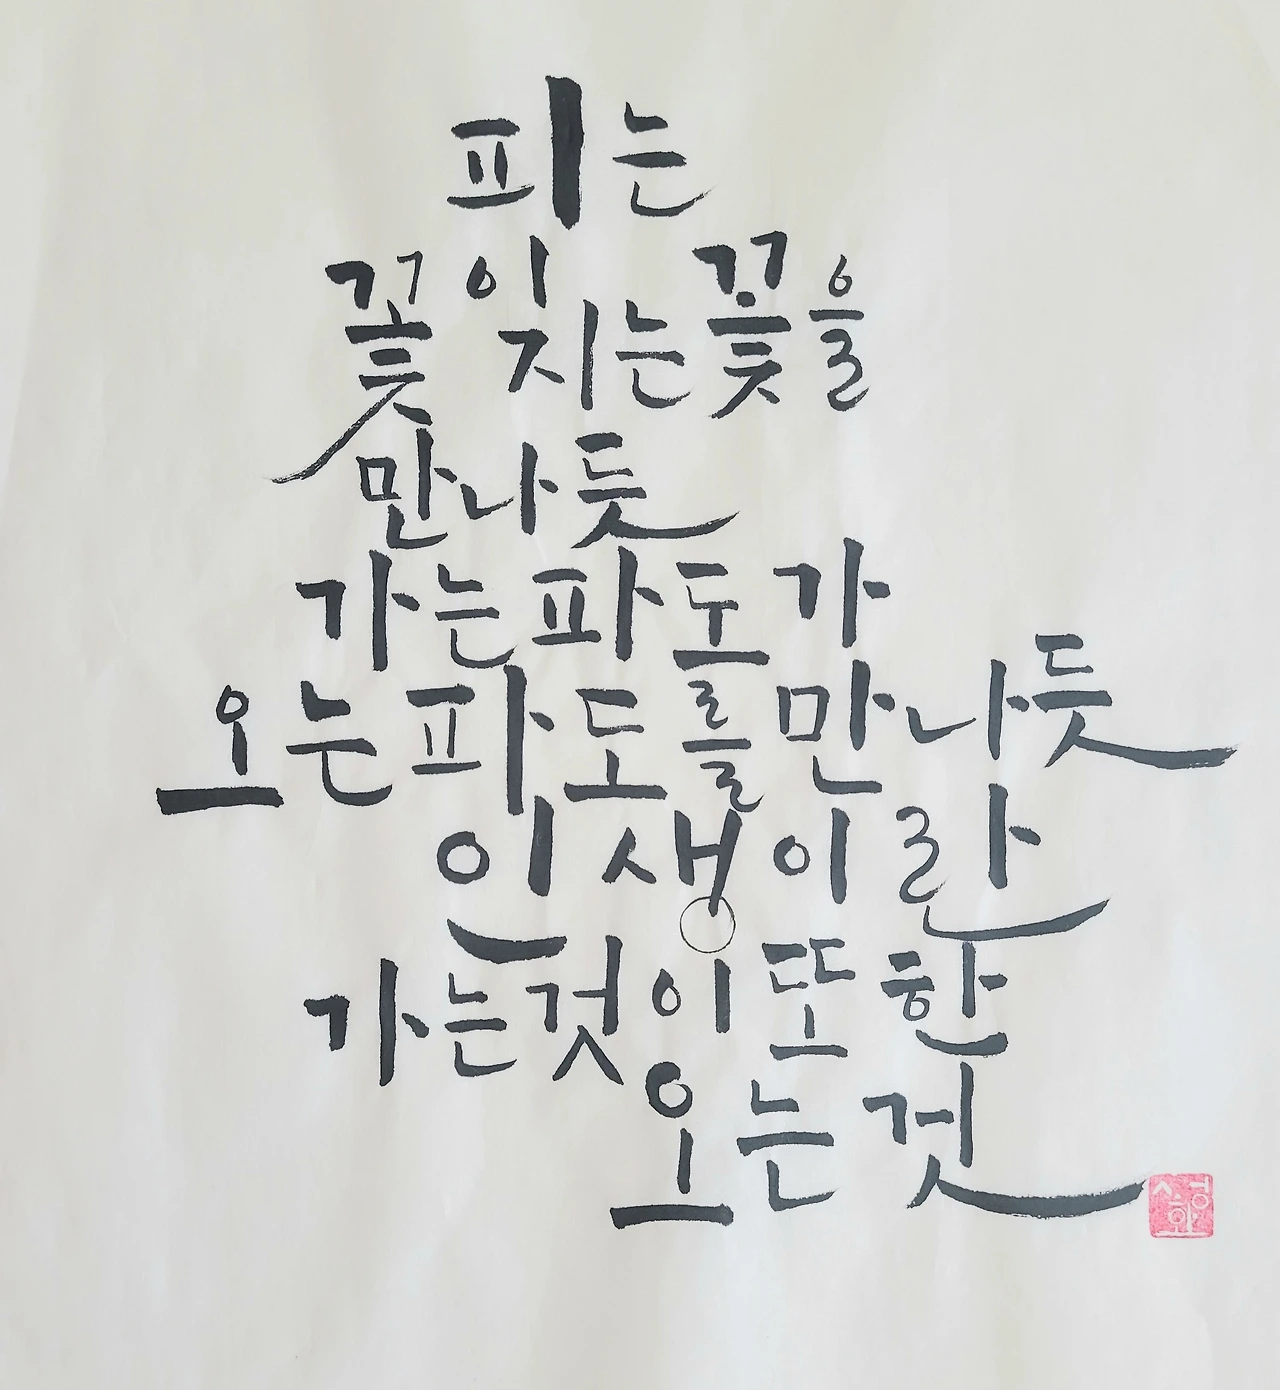 피는
꽃이 지는 꽃을
만나듯
가는 파도가
오는 파도를 만나듯
인생이란
가는것이 또한
오는것